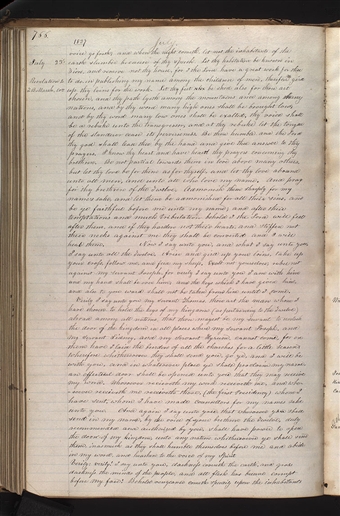 766
1837 July.
voice go forth, and when the night cometh let not the inhabitants of the
July. 23. earth slumber because of thy speech. Let thy habitation be known in
Zion, and remove not thy house, for I the Lord have a great work for thee
Revelation to to do, in publishing my name among the children of men, therefore gird
up thy loins for the work. Let thy feet be shod also for thou art
chosen, and thy path lyeth among the mountains and among many
nations, and by thy word many high ones shall be brought low,
and by thy word many low ones shall be exalted, thy voice shall
be a rebuke unto the transgressor, and at thy rebuke let the tongue
of the slanderer cease its perverseness. Be thou humble and the Lord
thy god shall lead thee by the hand and give thee answer to thy
prayers. I know thy heart and have heard thy prayers concerning thy
brethren. Be not partial towards them in love above many others,
but let thy love be for them as for thyself, and let thy love abound
unto all men, and unto all who love my name. And pray
for thy brethren of the Twelve. Admonish them sharply for my
name's sake, and let them be admonished for all their sins, and
be ye faithful before me unto my name; and after their
temptations and much tribulation behold I the Lord will feel
after them, and if they harden not their hearts and stiffen not
their necks against me they shall be converted and I will
heal them. Now I say unto you, and what I say unto you
I say unto all the Twelve. Arise and gird up your loins, take up
your cross, follow me, and feed my sheep. Exalt not yourselves; rebel not
against my servant Joseph for verily I say unto you I am with him
and my hand shall be over him; and the keys which I have given him,
and also to you ward shall not be taken from him until I come.
Verily I say unto you my servant Thomas, thou art the man whom I
have chosen to hold the keys of my kingdom (as pertaining to the Twelve)
abroad among all nations, that thou mayest be my servant to unlock
the door of the kingdom in all places where my servant Joseph, and
my servant Sidney, and my servant Hyrum, cannot come, for on
them have I laid the burden of all the churches for a little season:
wherefore whithersoever they shall send you, go ye, and I will be
with you, and in whatsoever place ye shall proclaim my name
an effectual door shall be opened unto you that they may receive
my word. Whosoever receiveth my word receiveth me, and who-
soever receiveth me receiveth those (the first Presidency) whom I
have sent, whom I have made counsellors for my name's sake
unto you. And again I say unto you, that whosoever ye shall
send in my name, by the voice of your brethren the Twelve, duly
recommended and authorized by you, shall have power to open
the door of my kingdom unto any nation whithersoever ye shall send
them, inasmuch as they shall humble themselves before me and abide
in my word, and hearken to the voice of my Spirit.
Verily verily I say unto you, darkness covereth the earth, and gross
darkness the minds of the people, and all flesh has become corrupt
before my face! Behold vengeance cometh speedily upon the inhabitants